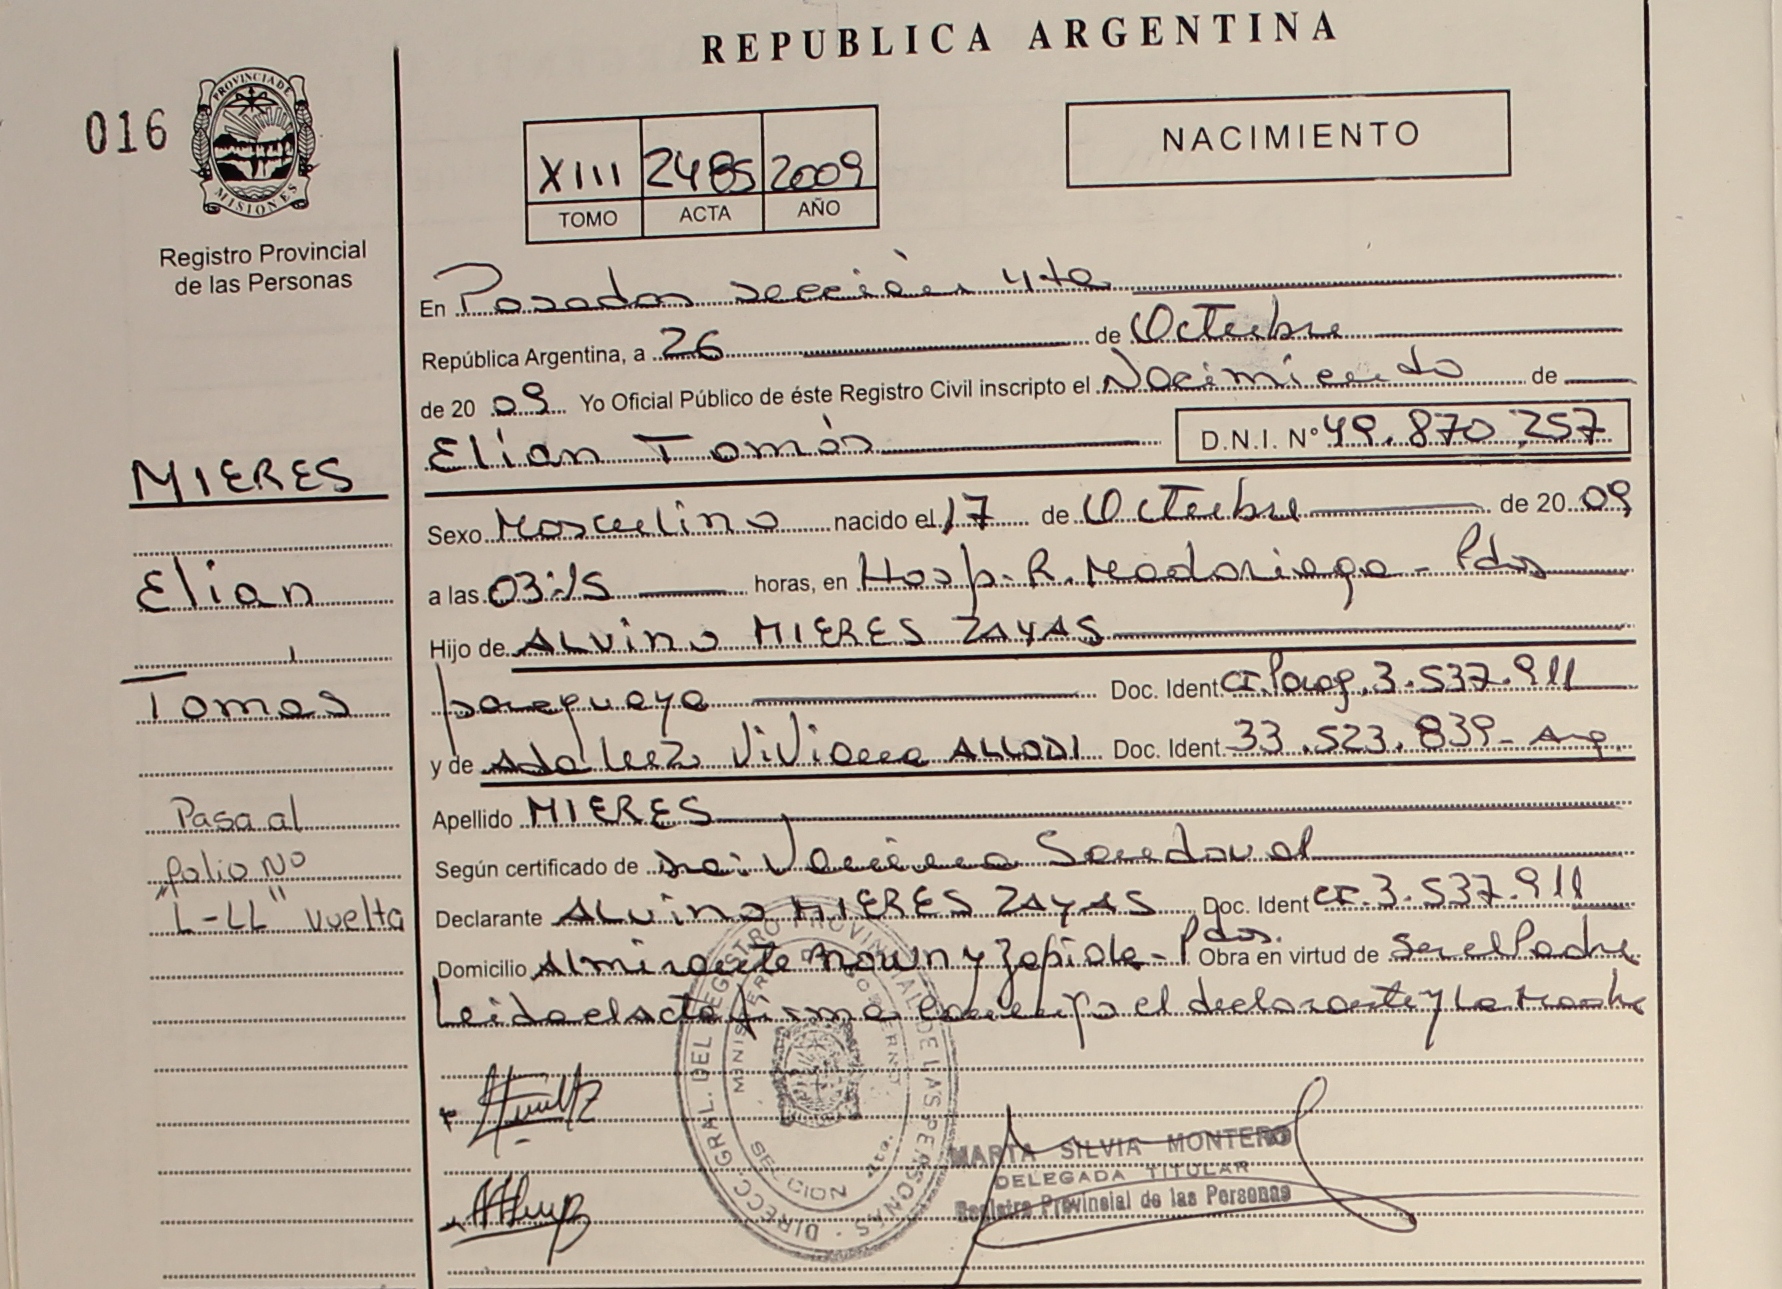 REPUBLICA ARGENTINA
016
PROVINCIA DE MISIONES
Registro Provincial
de las Personas
XIII 2485 2009
TOMO ACTA AÑO
NACIMIENTO
En Posadas sección 4ta
República Argentina, a 26 de Octubre
de 2009 Yo Oficial Público de éste Registro Civil inscripto el Nacimiento de
Elian Tomás D.N.I. Nº 49.870.257
Sexo Masculino nacido el 17 de Octubre de 2009
a las 03:15 horas, en Hosp. R. Madariaga - Pdas
Hijo de ALVINO MIERES ZAYAS
paraguaya Doc. Ident CI. Parag. 3.537.911
y de Ada Luz Viviana ALLODI Doc. Ident. 33.523.839 - Arg.
Apellido MIERES
Según certificado de Dra. Vanina Sandoval
Declarante ALVINO MIERES ZAYAS Doc. Ident CI. 3.537.911
Domicilio Almirante Brown y Zapiola - Pdas. Obra en virtud de Ser el Padre
Leida el acta firma conmigo el declarante y la Madre
MIERES
Elian
Tomás
Pasa al
folio Nº
"L-LL" vuelta
DIRECC. GRAL. DEL REGISTRO PROVINCIAL DE LAS PERSONAS
SECCION 4ta.
MARTA SILVIA MONTERO
DELEGADA TITULAR
Registro Provincial de las Personas